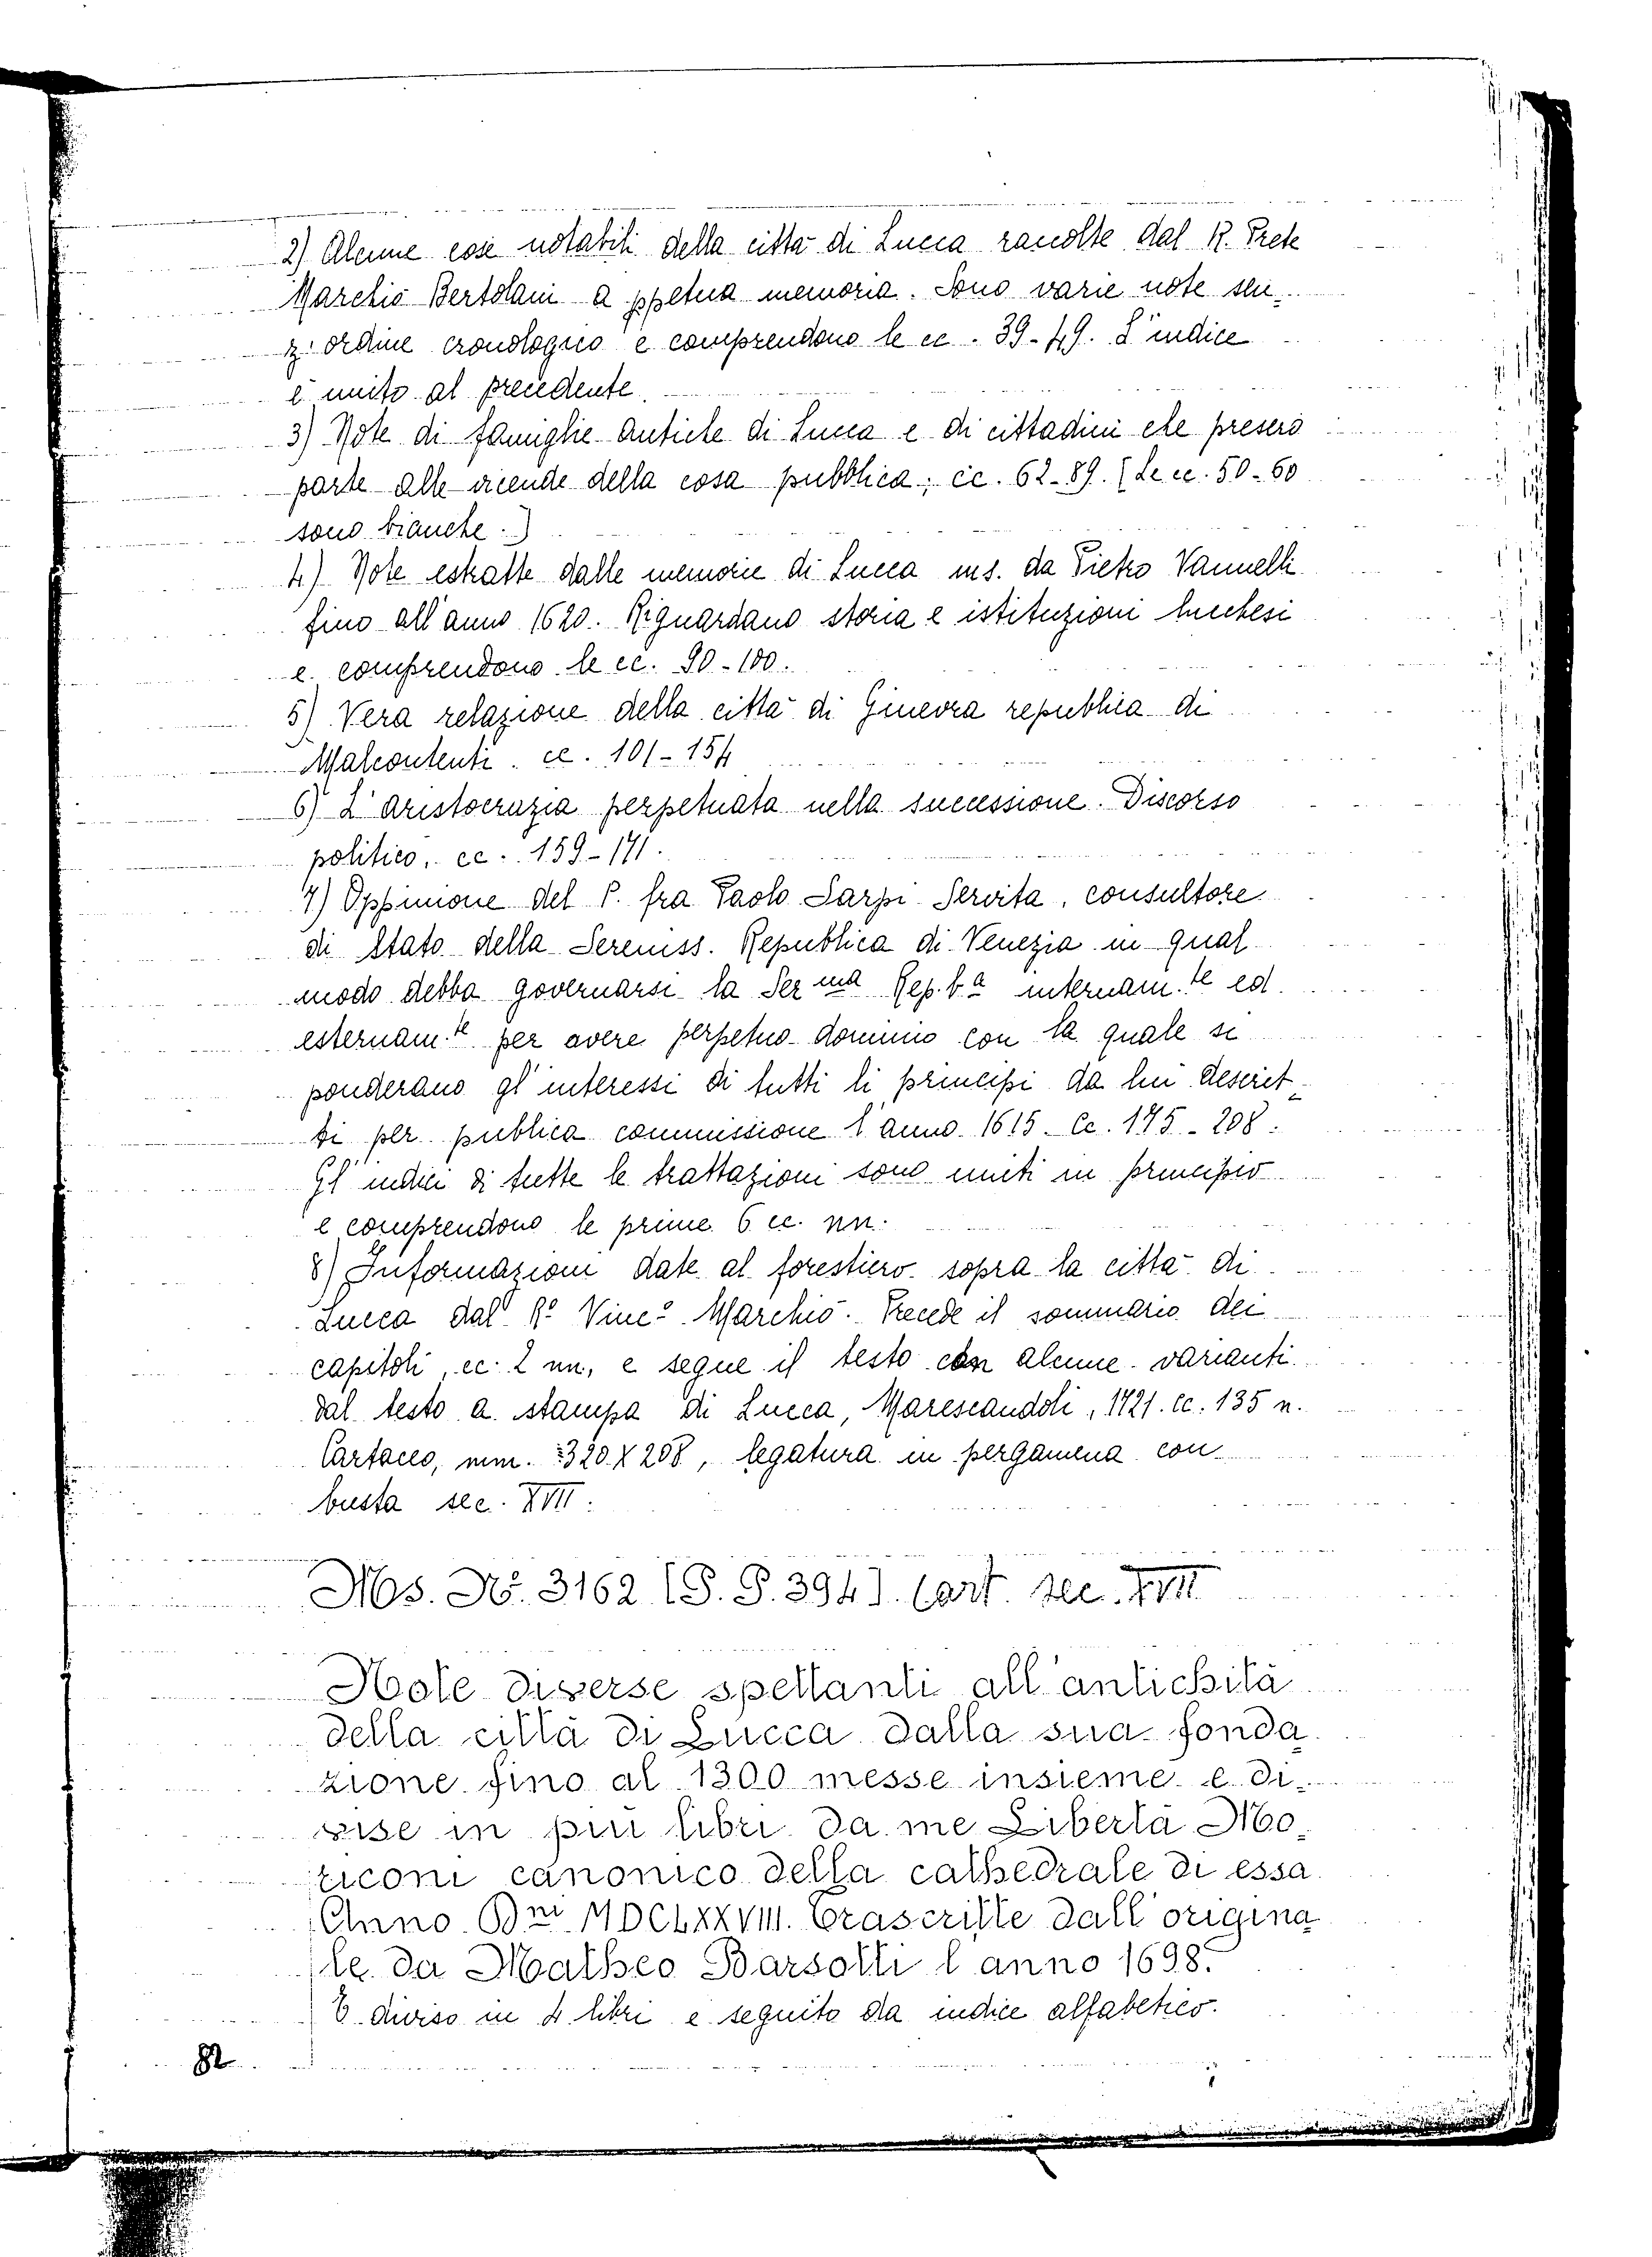 2) Alcune cose notabili della città di Lucca raccolte dal R. Prete
Marchiò Bertolani a ppetua memoria. Sono varie note sen-
z'ordine cronologico e comprendono le cc. 39-49. L'indice
è unito al precedente.
3) Note di famiglie antiche di Lucca e di cittadini che presero
parte alle vicende della cosa pubblica; cc. 62-89. (Le cc. 50-60
sono bianche.)
4) Note estratte dalle memorie di Lucca ms. da Pietro Vannelli
fino all'anno 1620. Riguardano storia e istituzioni lucchesi
e comprendono le cc. 90-100.
5) Vera relazione della città di Ginevra republica di
Malcontenti. cc. 101-154
6) L'aristocrazia perpetuata nella successione. Discorso
politico, cc. 159-171.
7) Oppinione del P. fra Paolo Sarpi Servita, consultore
di Stato della Sereniss. Republica di Venezia in qual
modo debba governarsi la Ser ma Rep.ba internam.te ed
esternam.te per avere perpetuo dominio con la quale si
ponderano gl'interessi di tutti li principi da lui descrit-
ti per publica commissione l'anno 1615. Cc. 175-208.
Gl'indici di tutte le trattazioni sono uniti in principio
e comprendono le prime 6 cc. nn.
8) Informazioni date al forestiero sopra la città di
Lucca dal R.o Vinc.o Marchiò. Precede il sommario dei
capitoli, cc. 2 nn, e segue il testo con alcune varianti
dal testo a stampa di Lucca, Marescandoli, 1721. cc. 135 n.
Cartaceo, mm. 320 X 208, legatura in pergamena con
busta sec. XVII.
Ms. No. 3162 [S. S. 394]. Cart. sec. XVII
Note diverse spettanti all'antichità
della città di Lucca dalla sua fonda
zione fino al 1300 messe insieme e di-
vise in più libri da me Libertà Mo-
riconi canonico della cathedrale di essa
Anno Dni MDCLXXVIII. Trascritte dall'origina
le da Matheo Barsotti l'anno 1698.
È diviso in 4 libri e seguito da indice alfabetico.
82